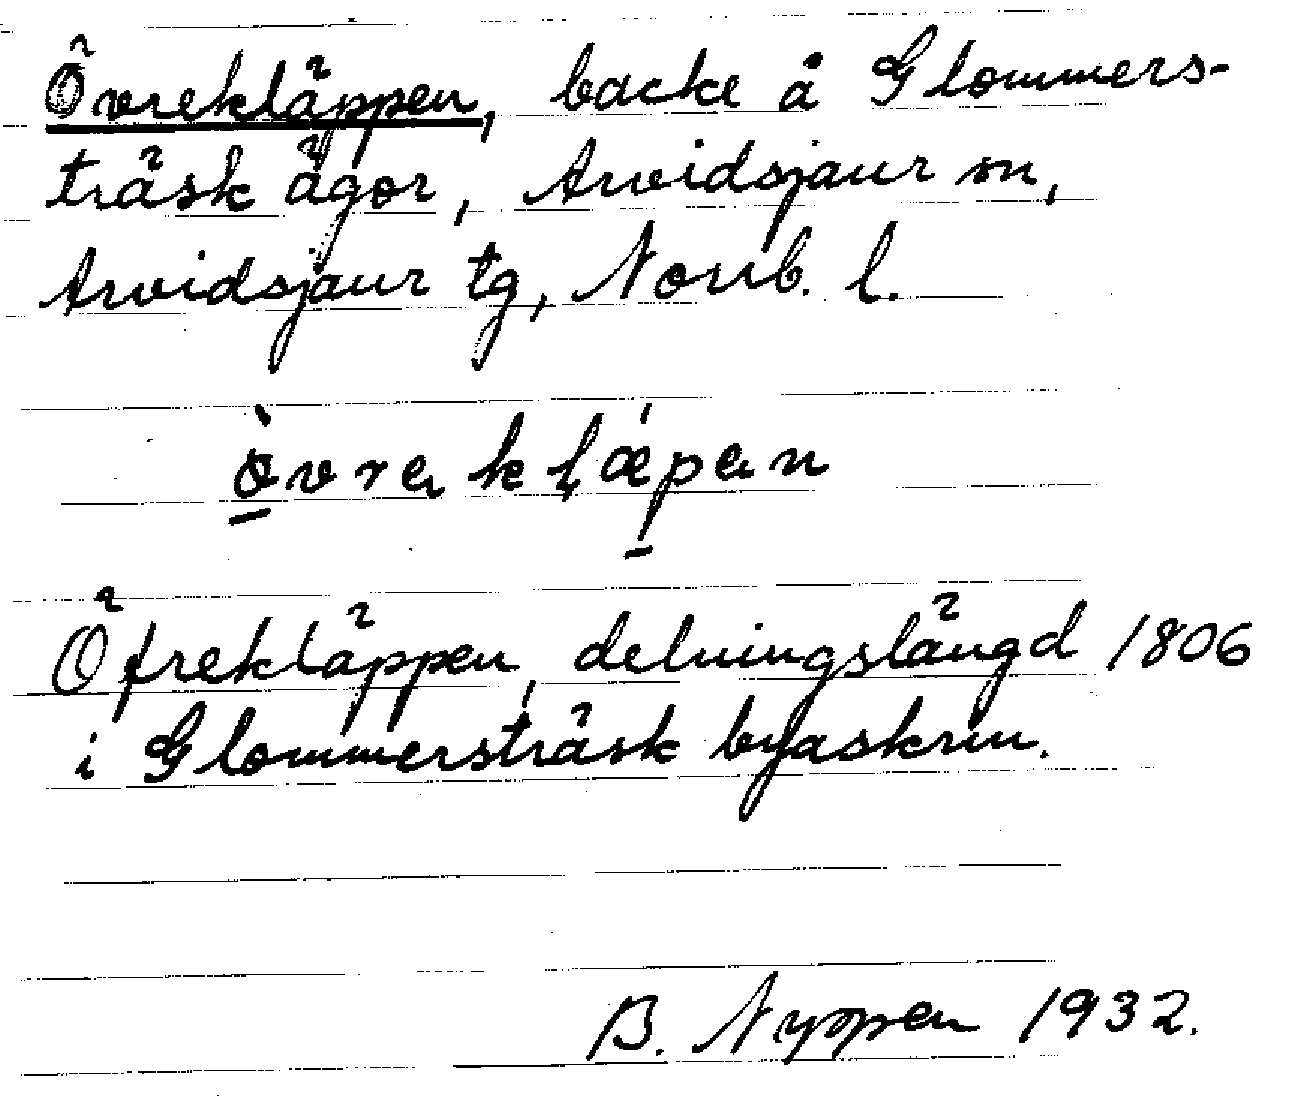 Övrekläppen, backe å Glommers-
träsk ägor, Arvidsjaur sn,
Arvidsjaur tg, Norrb. l.
ö̀vrekḷǽpen
Öfrekläppen, delningslängd 1806
i Glommersträsk byaskrin.
B. Nyppen 1932.